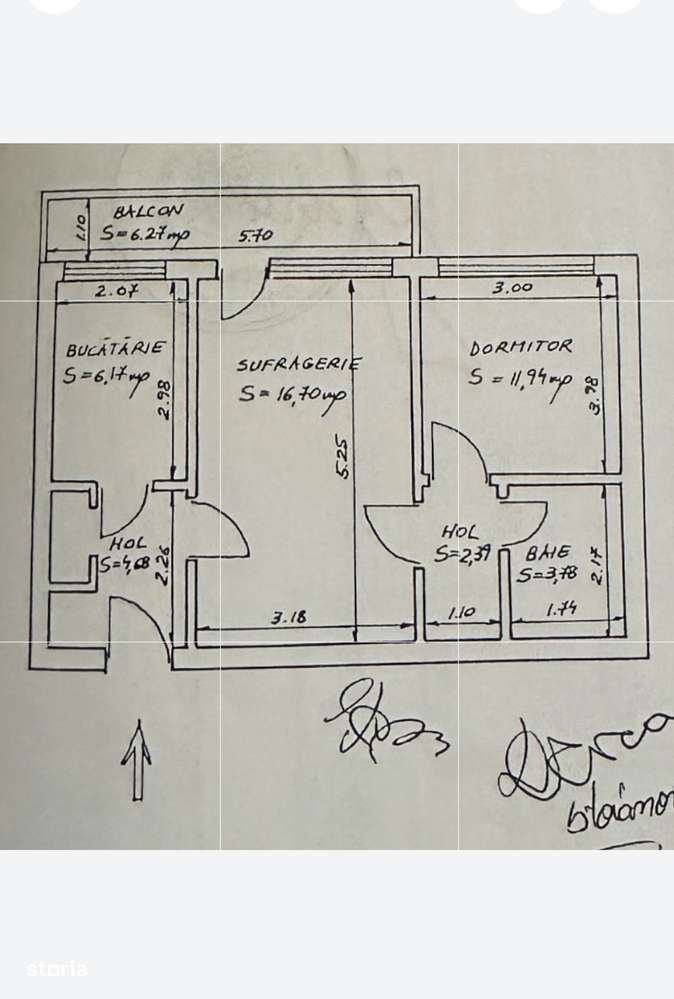 BALCON
S=6.27mp
1.10
5.70
2.07
3.00
BUCĂTĂRIE
S=6,17mp
2.98
SUFRAGERIE
S=16,70mp
5.25
DORMITOR
S=11,94mp
3.98
HOL
S=4,68
2.26
HOL
S=2,39
BAIE
S=3,78
2.17
3.18
1.10
1.74
storia